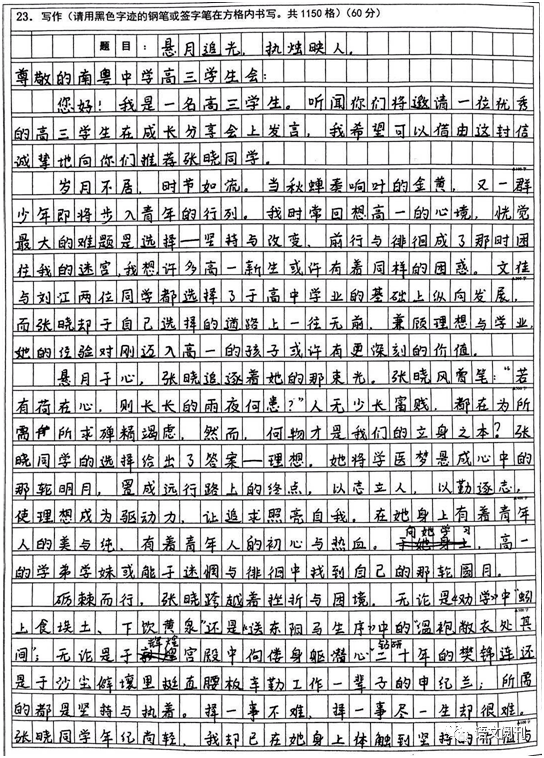 23. 写作(请用黑色字迹的钢笔或签字笔在方格内书写。共1150格)(60分)
题目:悬月追光,执烛映人。
尊敬的南粤中学高三学生会:
您好!我是一名高三学生。听闻你们将邀请一位优秀
的高三学生在成长分享会上发言,我希望可以借由这封信
诚挚地向你们推荐张晓同学。
岁月不居,时节如流。当秋蝉奏响叶的金黄,又一群
少年即将步入青年的行列。我时常回想高一的心境,恍觉
最大的难题是选择—坚持与改变、前行与徘徊成了那时困
住我的迷宫,我想许多高一新生或许有着同样的困惑。文佳
与刘江两位同学都选择了于高中学业的基础上纵向发展,
而张晓却于自己选择的道路上一往无前,兼顾理想与学业,
她的经验对刚迈入高一的孩子或许有更深刻的价值。
悬月于心,张晓追逐着她的那束光。张晓风曾笔:“若
有荷在心,则长长的雨夜何患?”人无少长富贱,都在为所
需所求殚精竭虑,然而,何物才是我们的立身之本?张
晓同学的选择给出了答案—理想。她将学医梦悬成心中的
那轮明月,置成远行路上的终点,以志立人,以勤逐志,
使理想成为驱动力,让追求照亮自我。在她身上有着青年
人的美与纯、有着青年人的初心与热血。向她学习,高一
的学弟学妹或能于迷惘与徘徊中找到自己的那轮圆月。
砺棘而行,张晓跨越着挫折与困境。无论是《劝学》中“蚓
上食埃土、下饮黄泉”还是《送东阳马生序》中的“缊袍敝衣处其
间”;无论是于辉煌宫殿中佝偻身躯潜心钻研二十年的樊锦连还
是于沙尘僻壤里挺直腰板辛勤工作一辈子的申纪兰;所需
的都是坚持与执着。择一事不难,择一事尽一生却很难。
张晓同学年纪尚轻,我却已在她身上体触到坚持的
语文周刊